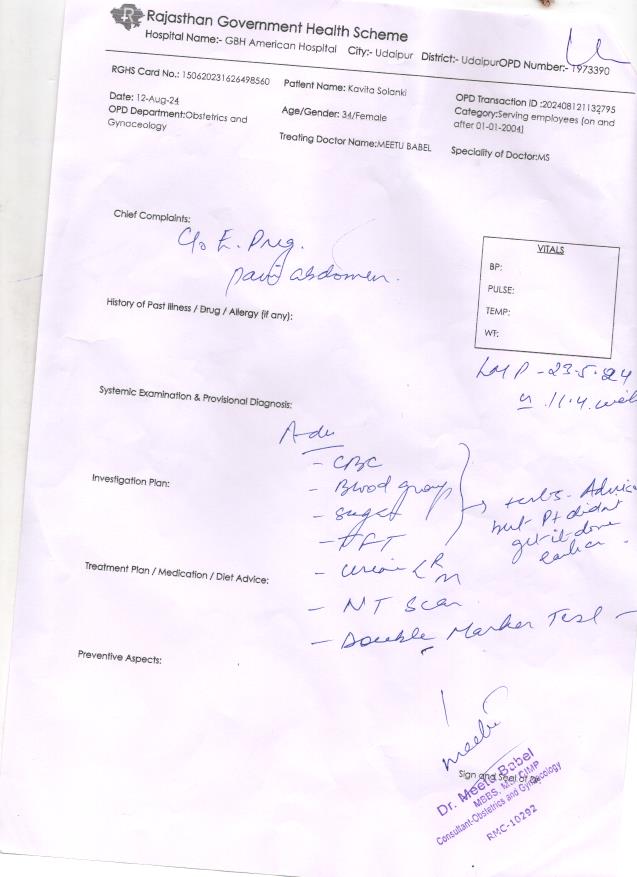 Rajasthan Government Health Scheme
Hospital Name:- GBH American Hospital City:- Udaipur District:- UdaipurOPD Number:- 1973390
RGHS Card No.: 150620231626498560 Patient Name: Kavita Solanki OPD Transaction ID :202408121132795
Date: 12-Aug-24 Age/Gender: 34/Female Category:Serving employees (on and
OPD Department:Obstetrics and after 01-01-2004)
Gynaceology Treating Doctor Name:MEETU BABEL Speciality of Doctor:MS
Chief Complaints:
C/o E. Preg.
pain abdomen.
VITALS
BP:
PULSE:
TEMP:
WT:
History of Past Illness / Drug / Allergy (if any):
LMP - 23.5.24
11.4.
Systemic Examination & Provisional Diagnosis:
Adv
- CBC
Investigation Plan:
- Blood group
- Sugar
Advice
but Pt didn't
get it done
earlier.
Treatment Plan / Medication / Diet Advice:
- Urine R
M
- NT Scan
- Double Marker Test -
Preventive Aspects:
Meetu
Sign and Seal of Dr
Dr. Meetu Babel
MBBS, MS, CIMP
Consultant-Obstetrics and Gynecology
RMC-10292